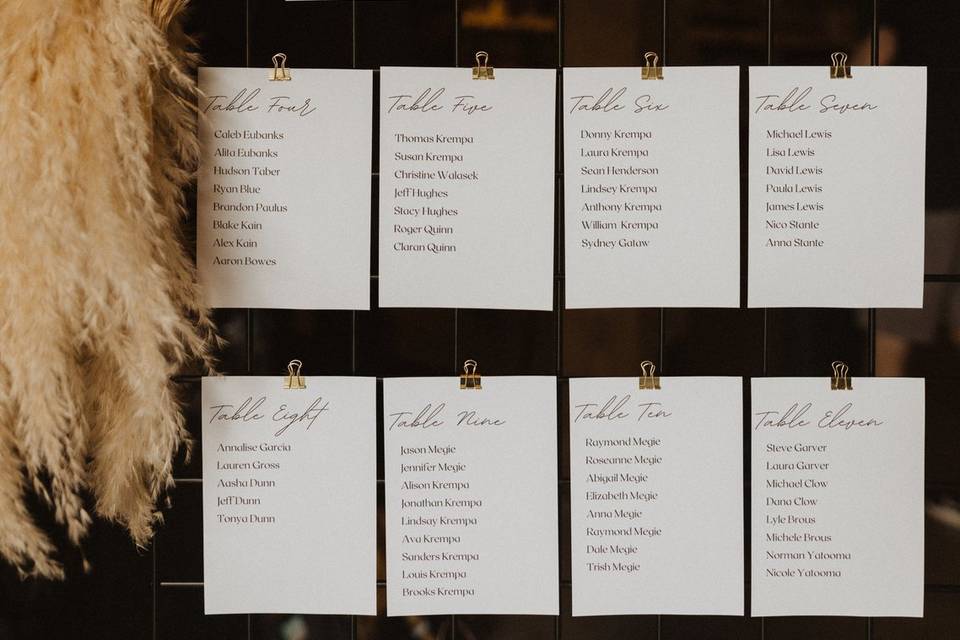 Table Four
Caleb Eubanks
Alita Eubanks
Hudson Taber
Ryan Blue
Brandon Paulus
Blake Kain
Alex Kain
Aaron Bowes
Table Five
Thomas Krempa
Susan Krempa
Christine Walasek
Jeff Hughes
Stacy Hughes
Roger Quinn
Claran Quinn
Table Six
Donny Krempa
Laura Krempa
Sean Henderson
Lindsey Krempa
Anthony Krempa
William Krempa
Sydney Gataw
Table Seven
Michael Lewis
Lisa Lewis
David Lewis
Paula Lewis
James Lewis
Nico Stante
Anna Stante
Table Eight
Annalise Garcia
Lauren Gross
Aasha Dunn
Jeff Dunn
Tonya Dunn
Table Nine
Jason Megie
Jennifer Megie
Alison Krempa
Jonathan Krempa
Lindsay Krempa
Ava Krempa
Sanders Krempa
Louis Krempa
Brooks Krempa
Table Ten
Raymond Megie
Roseanne Megie
Abigail Megie
Elizabeth Megie
Anna Megie
Raymond Megie
Dale Megie
Trish Megie
Table Eleven
Steve Garver
Laura Garver
Michael Clow
Dana Clow
Lyle Brous
Michele Brous
Norman Yatooma
Nicole Yatooma